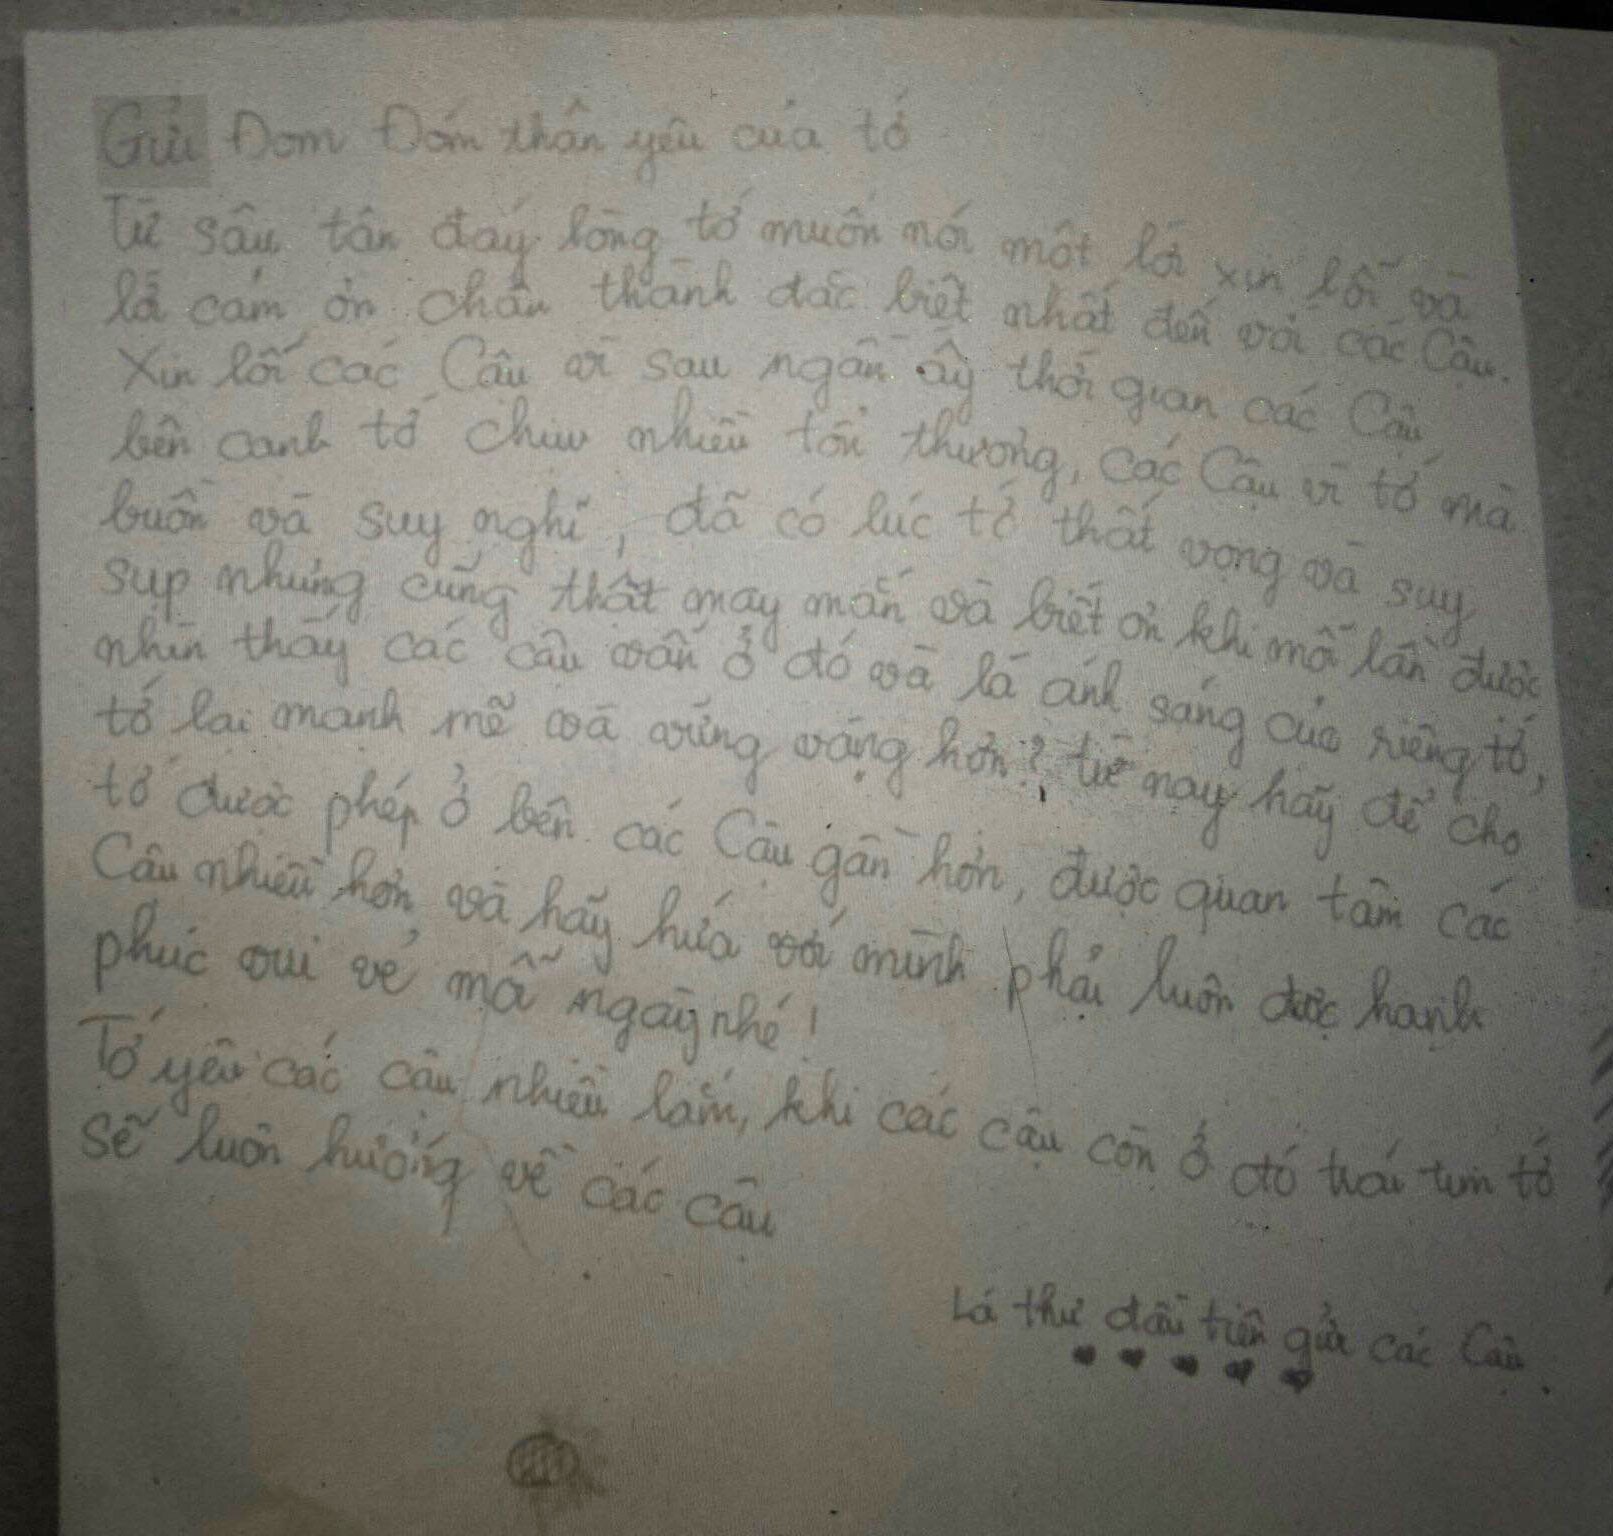 Gửi Đom Đóm thân yêu của tớ
Từ sâu tận đáy lòng tớ muốn nói một lời xin lỗi và
là cảm ơn chân thành đặc biệt nhất đến với các Cậu.
Xin lỗi các Cậu vì sau ngần ấy thời gian các Cậu
bên cạnh tớ chịu nhiều tổn thương, các Cậu vì tớ mà
buồn và suy nghĩ, đã có lúc tớ thất vọng và suy
sụp nhưng cũng thật may mắn và biết ơn khi mỗi lần được
nhìn thấy các cậu vẫn ở đó và là ánh sáng của riêng tớ,
tớ lại mạnh mẽ và vững vàng hơn? từ nay hãy để cho
tớ được phép ở bên các Cậu gần hơn, được quan tâm các
Cậu nhiều hơn và hãy hứa với mình phải luôn được hạnh
phúc vui vẻ mỗi ngày nhé!
Tớ yêu các cậu nhiều lắm, khi các cậu còn ở đó trái tim tớ
sẽ luôn hướng về các cậu
Lá thư đầu tiên gửi các Cậu.